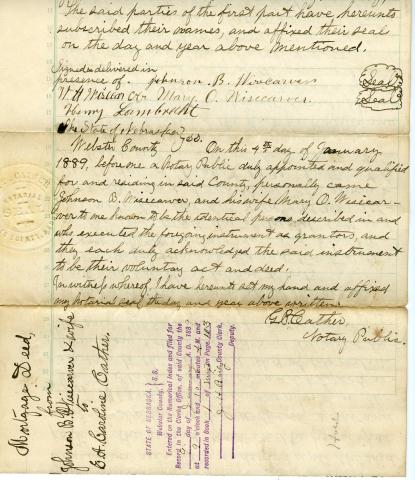 The said parties of the first part have hereunto
subscribed their names, and affixed their seal
on the day and year above mentioned.
Signed & delivered in
presence of Johnson B. Wisecarver Seal
W A Mary O. Wisecarver. Seal
Henry Lambrecht
The State of Nebraska } ss.
Webster County On this 4th day of January
1889, before me a Notary Public duly appointed and qualified
for and residing in said County, personally came
Johnson B. Wisecarver, and his wife Mary O. Wisecar-
ver to me known to be the identical persons described in and
who executed the foregoing instrument as grantors, and
they each duly acknowledged the said instrument
to be their voluntary act and deed.
In witness whereof, I have hereunto set my hand and affixed
my notarial seal the day and year above written.
Cather,
Notary Public.
Mortgage Deed,
from
Johnson B. Wisecarver & wife
to
Caroline Cather.
STATE OF NEBRASKA } S.S.
Webster County,
Entered on the Numerical Index and filed for
Record in the Clerks Office, of said County the
day of January A. D. 188
at o'clock and minutes M. and
recorded in Book of Page 183
County Clerk,
Deputy.